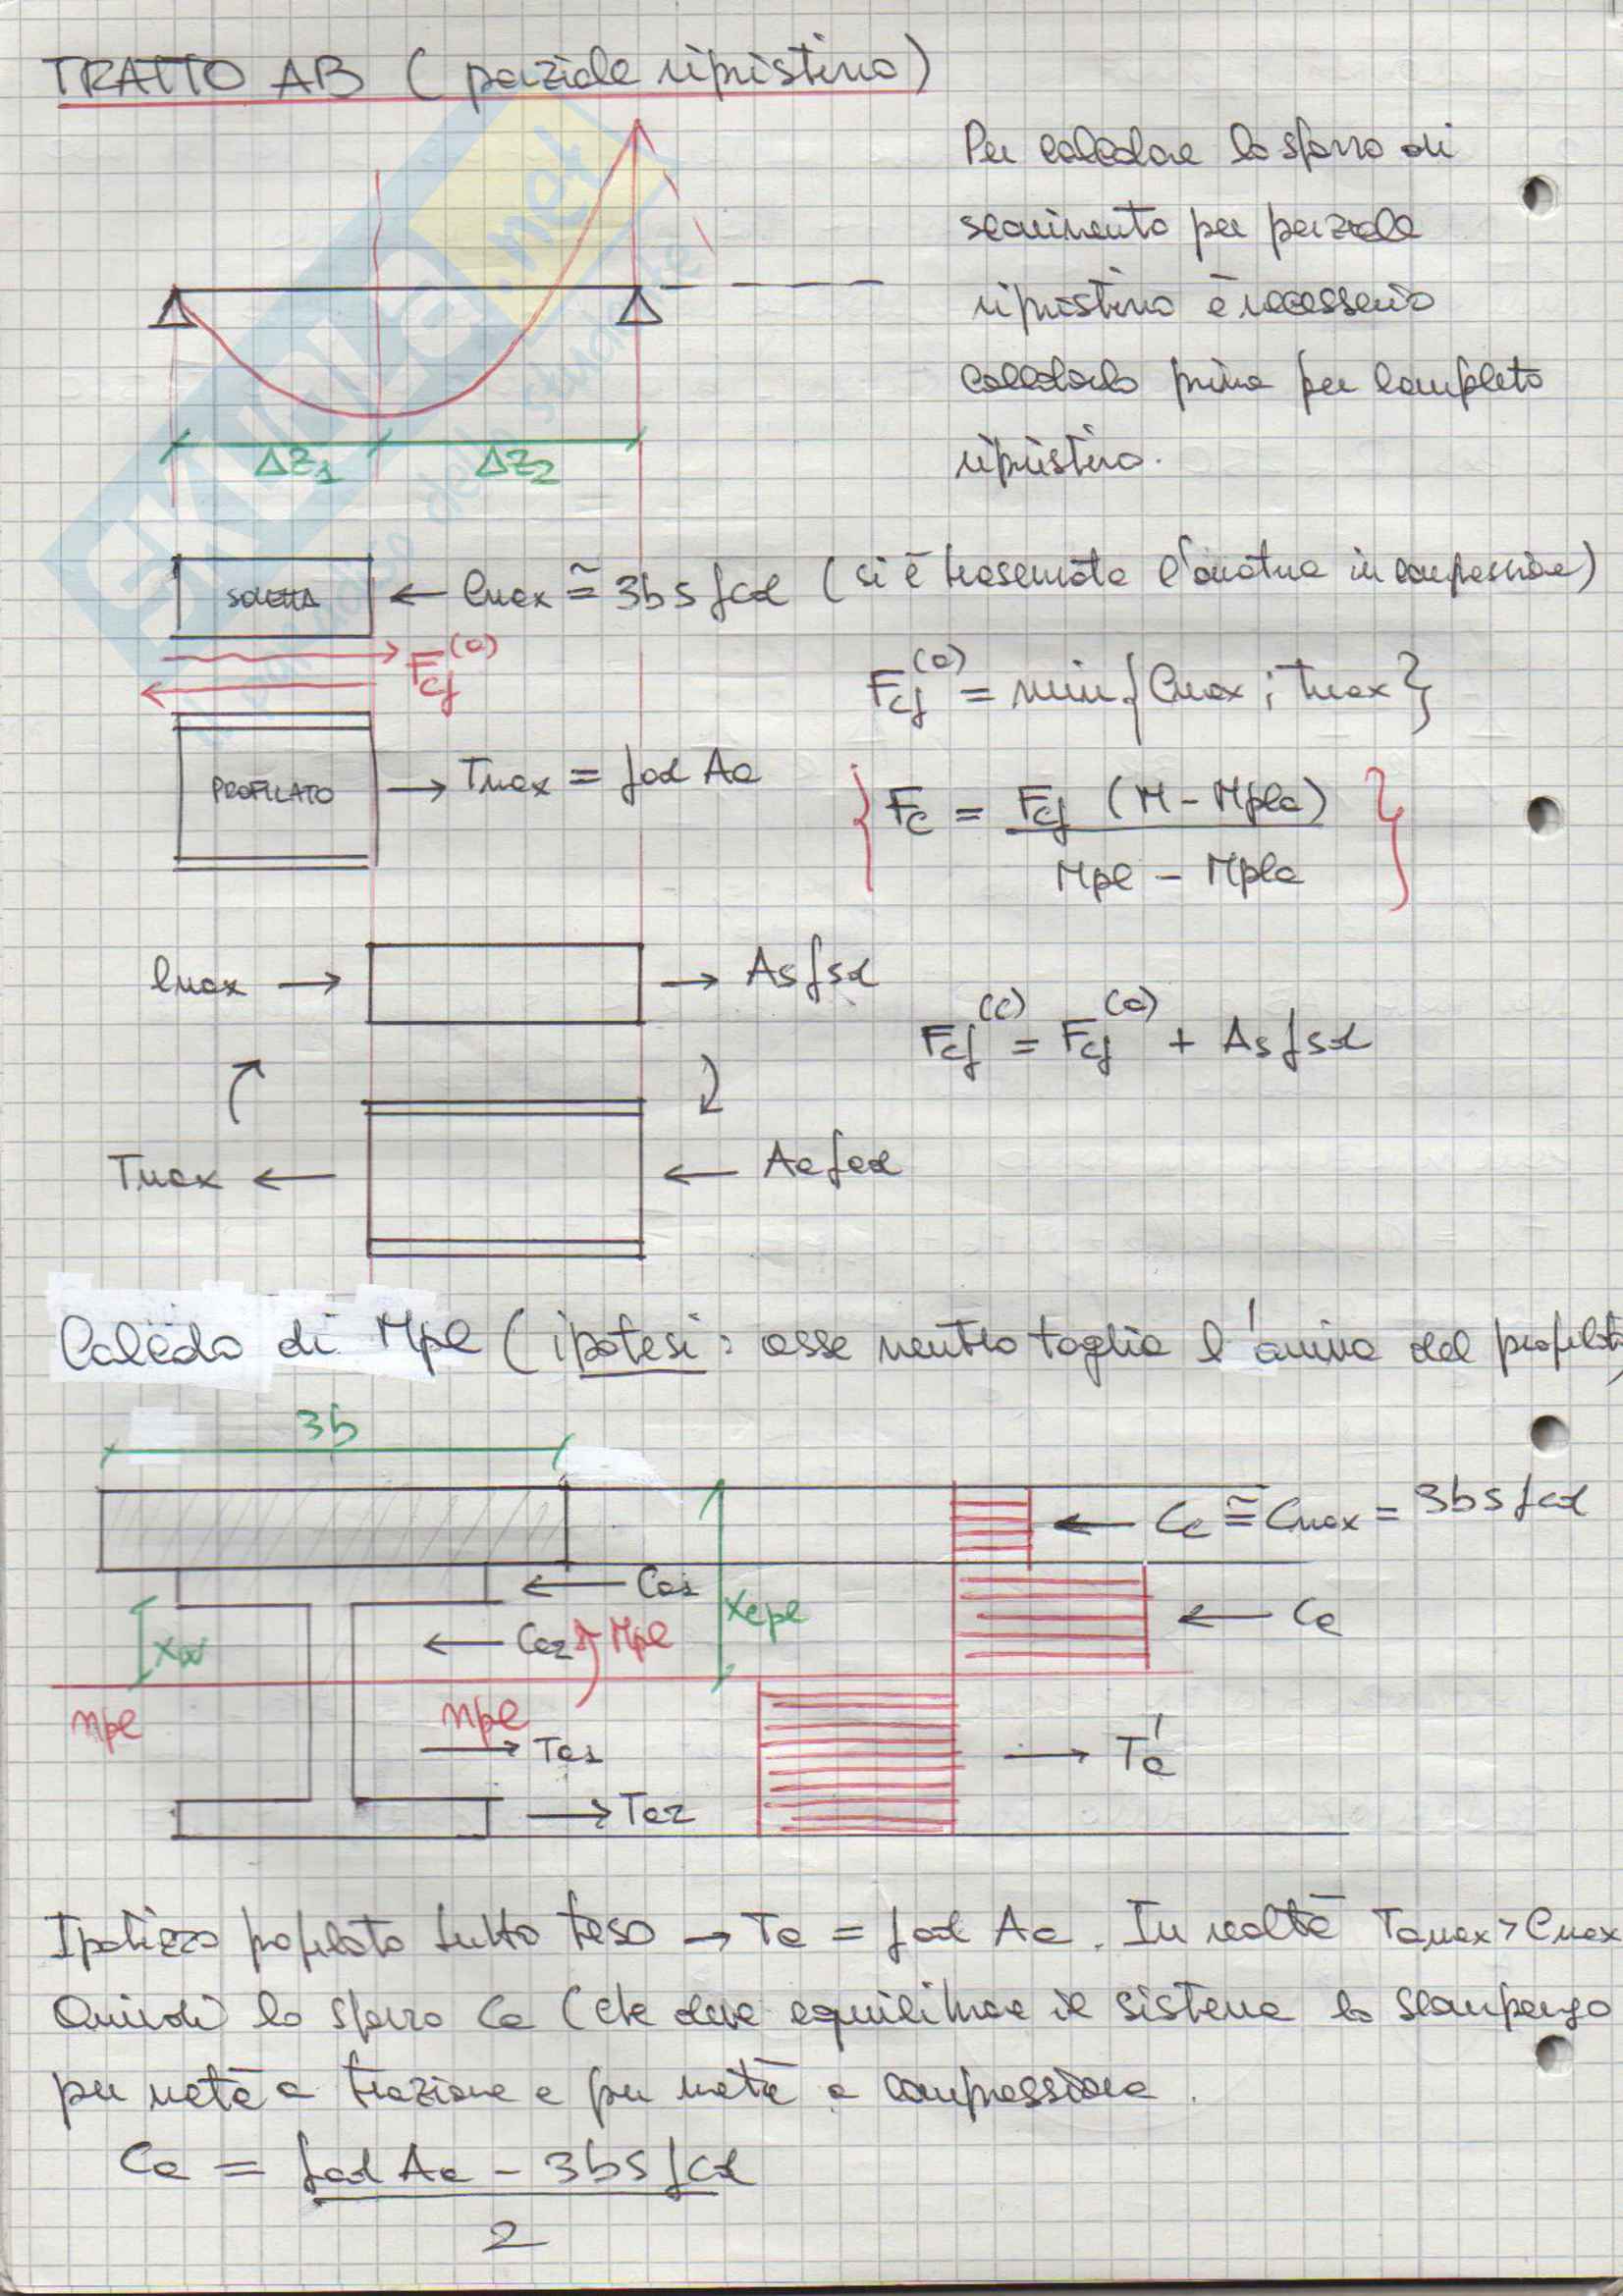 TRATTO AB (parziale ripristino)
Per calcolare lo sforzo di
scorrimento per parziale
ripristino è necessario
calcolarlo prima per completo
ripristino.
ΔZ1 ΔZ2
SOLETTA ← Cmax ≅ 3bs fcd (si è trascurata l'armatura in compressione)
Fcf(a)
Fcf(a) = min{Cmax ; Tmax}
PROFILATO → Tmax = fad Aa
{Fc = Fcf (M - Mpla) / Mpl - Mpla}
Cmax → → As fsd
Fcf(c) = Fcf(a) + As fsd
Tmax ← ← Aa fad
Calcolo di Mpl (ipotesi: asse neutro taglia l'anima del profilato)
3b
← Cc ≅ Cmax = 3bs fcd
← Ca1
xcpl
← Ca
xw
← Ca2 Mpl
npl npl
→ Ta1
→ Ta'
→ Ta2
Ipotizzo profilato tutto teso → Ta = fad Aa. In realtà Tamax > Cmax
Quindi lo sforzo Ca (che deve equilibrare il sistema lo scompongo
per metà a trazione e per metà a compressione.
Ca = fad Aa - 3bs fcd / 2
SKUOLA.net